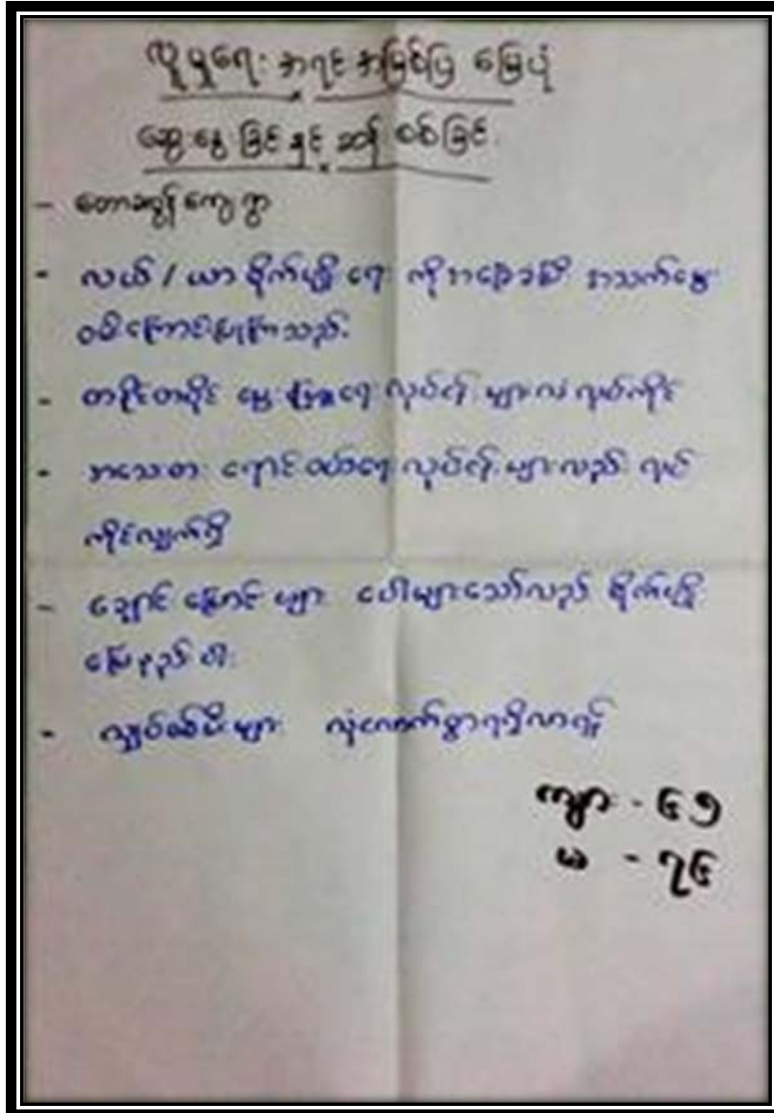 လူမှုရေး အရင်းအမြစ်ပြ မြေပုံ
ဆွေးနွေးခြင်းနှင့် ဆန်းစစ်ခြင်း
- တောဆွန်ကျေးရွာ
- လယ် / ယာ စိုက်ပျိုးရေး ကိုအခြေခံပြီး အသက်မွေး
ဝမ်းကြောင်းပြုကြသည်.
- တစ်ပိုင်တပိုင် မွေးမြူရေး လုပ်ငန်းများလဲ လုပ်ကိုင်
- အသေးစား ရောင်းဝယ်ရေး လုပ်ငန်းများလည်း လုပ်
ကိုင်လျှက်ရှိ
- ချောင်း မြောင်းများ ပေါများသော်လည်း စိုက်ပျိုး
မြေနည်းပါး
- လျှပ်စစ်မီးများ လုံလောက်စွာရရှိလာရန်
ကျား - ၆၅
မ - ၇၆